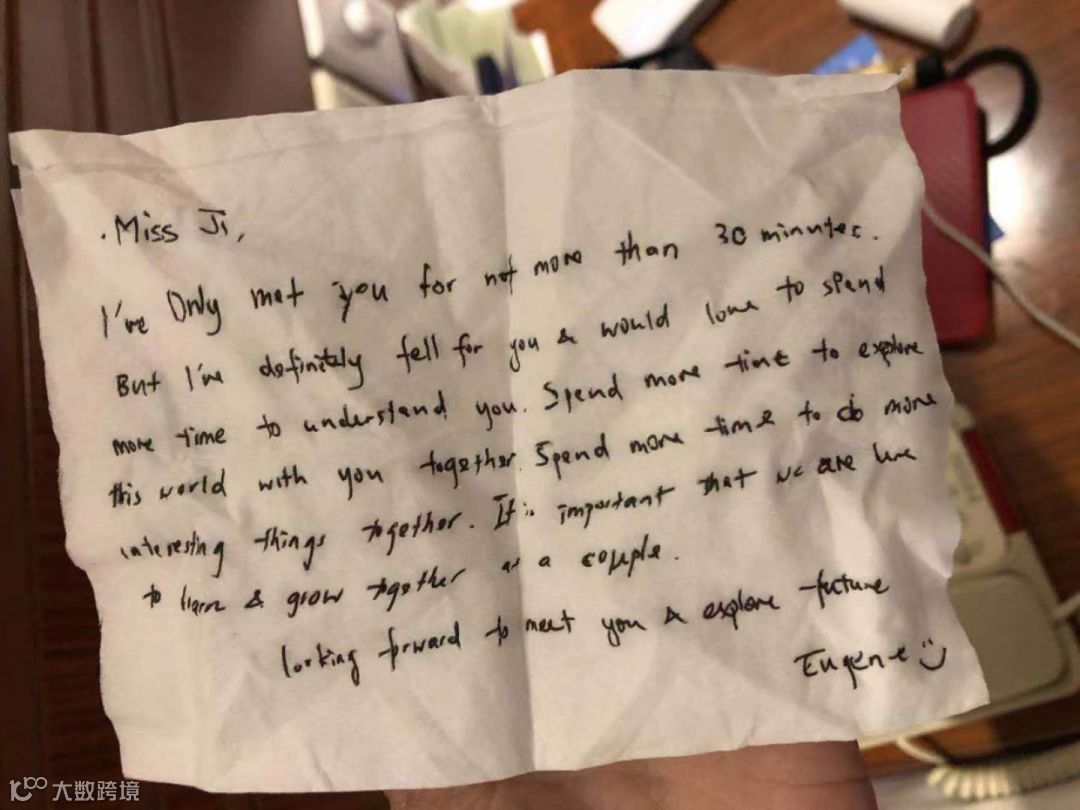 .Miss Ji,
I've Only met you for not more than 30 minutes.
But I've definitely fell for you & would love to spend
more time to understand you. Spend more time to explore
this world with you together. Spend more time to do more
interesting things together. It is important that we are here
to learn & grow together as a couple.
looking forward to meet you & explore future
Eugene
大数跨境